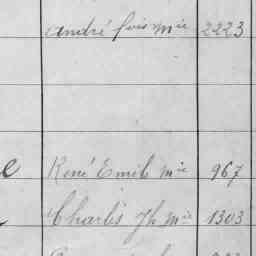 André fois Mie 2223
e René Emile Mie 967
Charles Jh Mie 1303